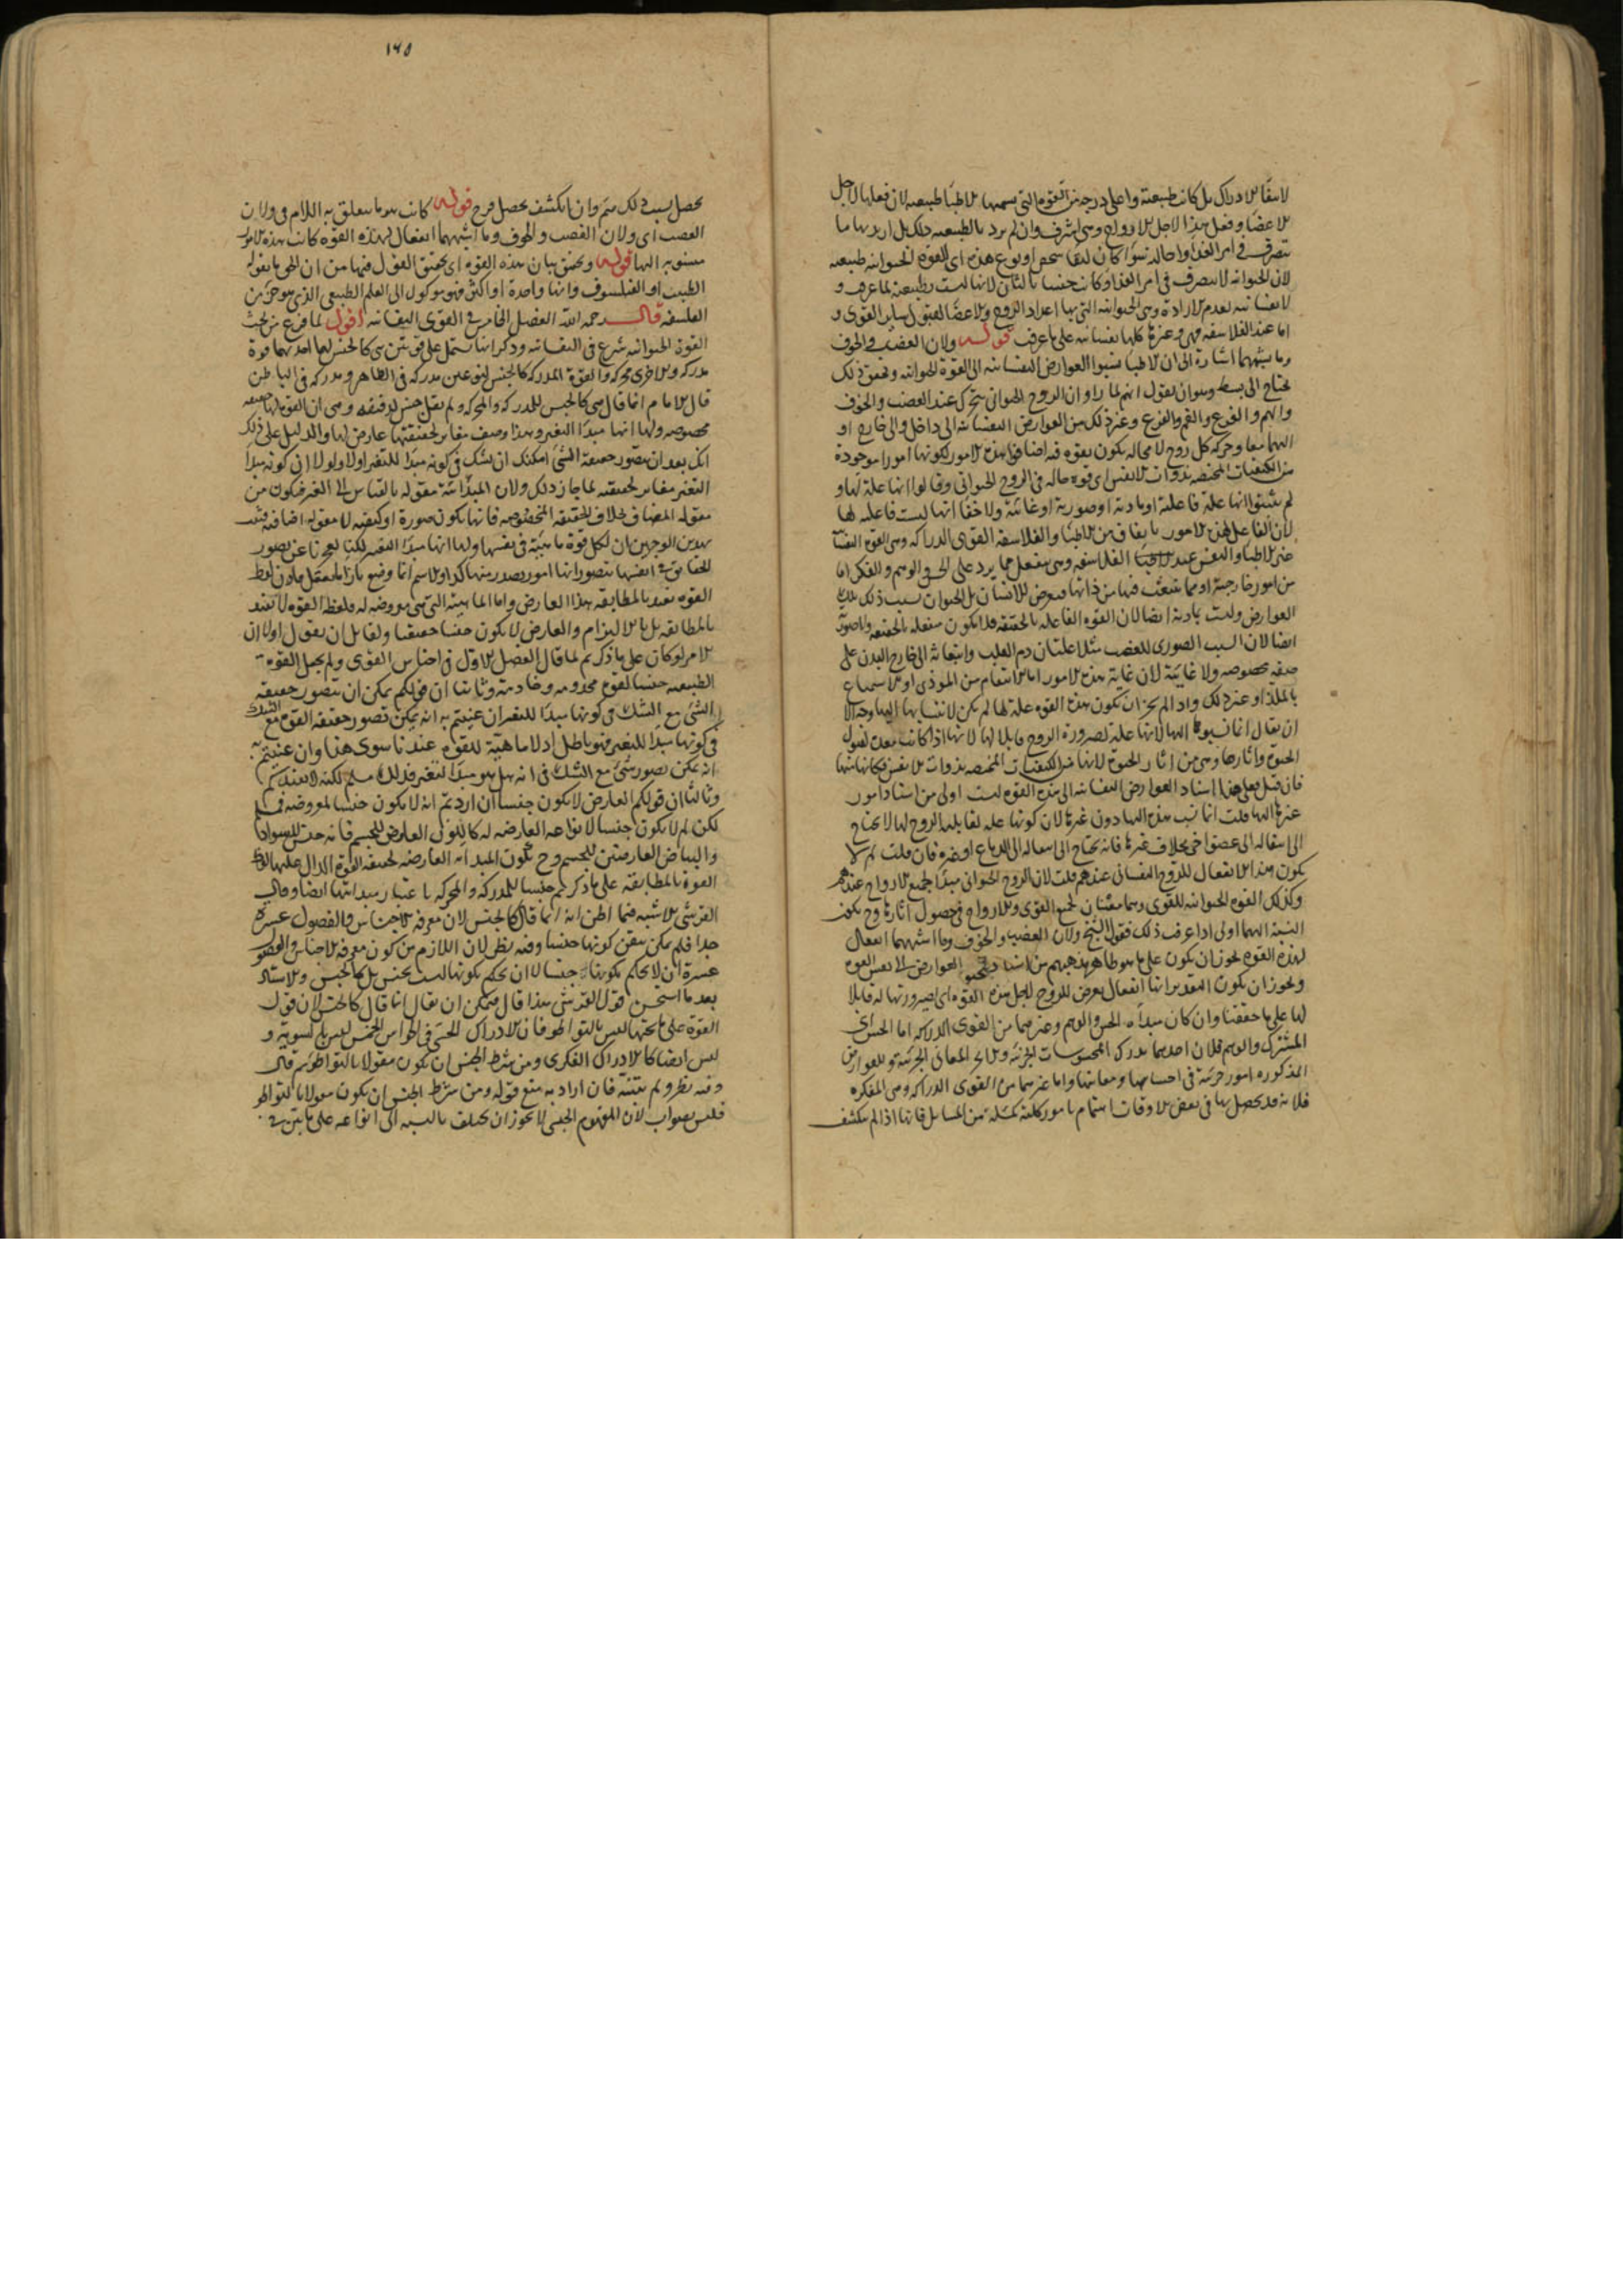 لانتفاء الادراك بل كانت طبيعية واعلى درجة من القوة التى يسميها الاطبا طبيعية لان فعلها لاجل
الاعضا وفعل هذا لاجل الارواح وهى اشرف وان لم يرد بالطبيعية ذلك بل اريد بها ما
يتصرف فى امر الغذا واحالته سوا كان لبقا شخص او نوع هذه اى القوة الحيوانية طبيعية
لان الحيوانية لا تتصرف فى امر الغذا وكانت جنسا ثالثا لانها ليست بطبيعية لما عرف و
لا نفسانية لعدم الارادة وهى الحيوانية التى بها اعداد الروح والاعضا لقبول ساير القوى و
اما عند الفلاسفة فهى وغيرها كلها نفسانية على ما عرف قوله ولان الغضب والخوف
وما يشبههما اشارة الى ان الاطبا نسبوا العوارض النفسانية الى القوة الحيوانية وتحقيق ذلك
يحتاج الى بسط وهو ان نقول انهم لما راوا ان الروح الحيوانى يتحرك عند الغضب والخوف
والهم والفرح والغم والفزع وغير ذلك من العوارض النفسانية الى داخل والى خارج او
اليهما معا وحركة كل روح لا محالة يكون بقوة فيه اضافوا هذه الامور لكونها امورا موجودة
من الكيفيات المختصة بذوات الانفس اى قوة حالة فى الروح الحيوانى وقالوا انها علة لها و
لم يثبتوا انها علة فاعلية او مادية او صورية او غائية ولا خفا انها ليست فاعلة لها
لان الفاعل لهذه الامور باتفاق من الاطبا والفلاسفة القوى الدراكة وهى القوة النفسا
عند الاطبا والنفس عند الفلاسفة وهى ينفعل مما يرد على الحس والوهم والفكر اما
من امور خارجية او مما ينبعث فيها من ذاتها فيعرض للانسان بل الحيوان بسبب ذلك تلك
العوارض وليست مادية ايضا لان القوة الفاعلة بالحقيقة فلا يكون منفعلة بالحقيقة ولا صورية
ايضا لان السبب الصورى للغضب مثلا غليان دم القلب وانبعاثه الى خارج البدن على
صفة مخصوصة ولا غائية لان غاية هذه الامور اما الانتقام من الموذى او الاستمتاع
بالملذ او غير ذلك واذا لم يجز ان تكون هذه القوة علة لها لم يكن لانتسابها اليها وجه الا
ان يقال انما نسبوها اليها لانها علة لصيرورة الروح قابلا لها لانها اذا كانت معدة لقبول
الحيوة واثارها وهى من اثار الحيوة لانها من الكيفيات المختصة بذوات الانفس فكانها منها
فان قيل فعلى هذا اسناد العوارض النفسانية الى هذه القوة ليست اولى من اسناد امور
غيرها اليها قلت انما نسب هذه اليها دون غيرها لان كونها علة لقابلية الروح لها لا يحتاج
الى انتقاله الى عضو اخر بخلاف غيرها فانه يحتاج الى انتقاله الى الدماغ او غيره فان قلت لم لا
يكون هذا الانفعال للروح النفسانى عندهم قلت لان الروح الحيوانى مبدا لجميع الارواح عندهم
وكذلك القوة الحيوانية للقوى وهما معينان لجميع القوى والارواح فى حصول اثارها وح يكون
النسبة اليهما اولى اذا عرف ذلك فقول الشيخ ولان الغضب والخوف وما اشبههما انفعال
لهذه القوة يجوز ان يكون على ما هو ظاهر مذهبهم من اسناد العوارض الى نفس القوة
ويجوز ان يكون التقدير انها انفعال يعرض للروح لاجل هذه القوة اى لصيرورتها له قابلا
لها على ما حققنا وان كان مبداه الحس والوهم وغيرهما من القوى الدراكة اما الحس اى
المشترك والوهم فلان احدهما يدرك المحسوسات الجزئية والاخر المعانى الجزئية وللعوارض
المذكورة امور جزئية فى احساسها ومعانيها واما غيرهما من القوى الدراكة وهى المفكرة
فلانه قد يحصل بها فى بعض الاوقات اهتمام بامور كلية كمسئلة من المسايل فانها اذا لم ينكشف
١٤٥
يحصل بسبب ذلك غم وان انكشف يحصل فرح قوله كانت هو ما يتعلق به اللام فى ولان
الغضب اى ولان الغضب والخوف وما اشبههما انفعال لهذه القوة كانت هذه الامور
منسوبة اليها قوله وتحقيق بيان هذه القوى اى تحقيق القول فيها من ان الحق ما يقوله
الطبيب او الفيلسوف وانها واحدة او اكثر فهو موكول الى العلم الطبيعى الذى هو جزء من
الفلسفة قال رحمه الله الفصل الخامس فى القوى النفسانية اقول لما فرغ من بحث
القوة الحيوانية شرع فى النفسانية وذكر انها تشتمل على قوتين هى كالجنس لهما احديهما قوة
مدركة والاخرى محركة والقوة المدركة كالجنس لنوعين مدركة فى الظاهر ومدركة فى الباطن
قال الامام انما قال هى كالجنس للمدركة والمحركة ولم يقل جنس لدقيقة وهى ان القوة لها حقيقة
مخصوصة ولها انها مبدا التغير وهذا وصف مغاير لحقيقتها عارض لها والدليل على ذلك
انك بعد ان تتصور حقيقة الشئ امكنك ان تشك فى كونه مبدا للتغير او لا ولولا ان كونه مبدا
التغير مغاير لحقيقته لما جاز ذلك ولان المبدائية مقولة بالقياس الى الغير فيكون من
مقولة المضاف بخلاف الحقيقة المخصوصة فانها يكون صورة او كيفية لا مقولة اضافية فثبت
بهذين الوجهين ان لكل قوة ماهية فى نفسها ولها انها مبدا التغير لكنا لعجزنا عن تصور
الحقايق فى انفسها نتصور انها امور يصدر منها كذا والاسم انما وضع بازاء ما يعقل فاذن لفظ
القوة تفيد بالمطابقة هذا العارض واما الماهية التى هى معروضة له فلفظ القوة لا تفيد
بالمطابقة بل بالالتزام والعارض لا يكون جنسا حقيقيا ولقايل ان يقول اولا ان
الامر لو كان على ما ذكرتم لما قال الفصل الاول فى اجناس القوى ولم يجعل القوة
الطبيعية جنسا لقوى مخدومة وخادمة وثانيا ان قولكم يمكن ان نتصور حقيقة
الشئ مع الشك فى كونها مبدا للتغير ان عنيتم به انه يمكن تصور حقيقة القوة مع الشك
فى كونها مبدا للتغير فهو باطل اذ لا ماهية للقوة عندنا سوى هذا وان عنيتم به
انه يمكن تصور شئ مع الشك فى انه هل هو مبدا لتغير فذلك مسلم لكنه لا يفيدكم
وثالثا ان قولكم العارض لا يكون جنسا ان اردتم انه لا يكون جنسا لمعروضه فمسلم
لكن لم لا يكون جنسا لانواعه العارضة له كاللون العارض للجسم فانه جنس للسواد
والبياض العارضين للجسم وح تكون المبدائية العارضة لحقيقة القوة الدال عليها لفظ
القوة بالمطابقة على ما ذكرتم جنسا للمدركة والمحركة باعتبار مبدايتها ايضا وقال
القرشى الاشبه فيما اظن انه انما قال كالجنس لان معرفة الاجناس والفصول عسرة
جدا فلم يمكن يتيقن كونها جنسا وفيه نظر لان اللازم من كون معرفة الاجناس والفصول
عسرة ان لا يحكم بكونها جنسا لا ان يحكم بكونها ليست بجنس بل كالجنس والاستاذ
بعد ما استحسن قول القرشى هذا قال ويمكن ان يقال انما قال كالجنس لان قول
القوة على ما تحتها ليس بالتواطو فان الادراك الحسى فى الحواس الخمس ليس بالسوية و
ليس ايضا كالادراك الفكرى ومن شرط الجنس ان تكون مقولا بالتواطو ثم قال
وفيه نظر ولم يبينه فان اراد به منع قوله ومن شرط الجنس ان يكون مقولا بالتواطو
فليس بصواب لان المفهوم الجنسى لا يجوز ان يختلف بالنسبة الى انواعه على ما تبين فى